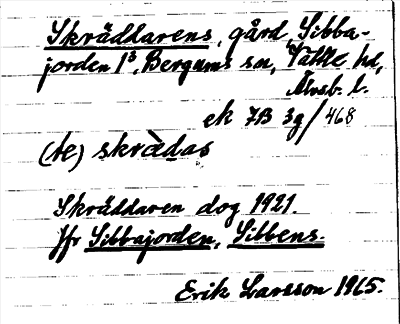 Skräddarens, gård Sibba-
jorden 1³, Bergums sn, Vättle hd,
Älvsb. l.
ek 7B 3g/468
(te) skrädas
Skräddaren dog 1921.
Jfr Sibbajorden, Sibbens.
Erik Larsson 1965.